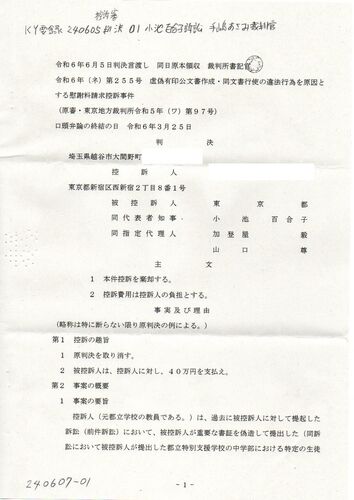 控訴審
KY 240605 判決 01 小池百合子訴訟 書記官
令和6年6月5日判決言渡し 同日原本領収 裁判所書記官
令和6年(ネ)第255号 虚偽有印公文書作成・同文書行使の違法行為を原因とする慰謝料請求控訴事件
(原審・東京地方裁判所令和5年(ワ)第97号)
口頭弁論の終結の日 令和6年3月25日
判決
埼玉県越谷市大間野町
控訴人
東京都新宿区西新宿2丁目8番1号
被控訴人 東京都
同代表者知事 小池百合子
同指定代理人 加登屋毅
山口尊
主文
1 本件控訴を棄却する。
2 控訴費用は控訴人の負担とする。
事実及び理由
(略称は特に断らない限り原判決の例による。)
第1 控訴の趣旨
1 原判決を取り消す。
2 被控訴人は、控訴人に対し、40万円を支払え。
第2 事案の概要
1 事案の要旨
控訴人(元都立学校の教員である。)は、過去に被控訴人に対して提起した
訴訟(前件訴訟)において、被控訴人が重要な書証を偽造して提出した(同訴
訟において被控訴人が提出した都立特別支援学校の中学部における特定の生徒
- 1 -
240607-01